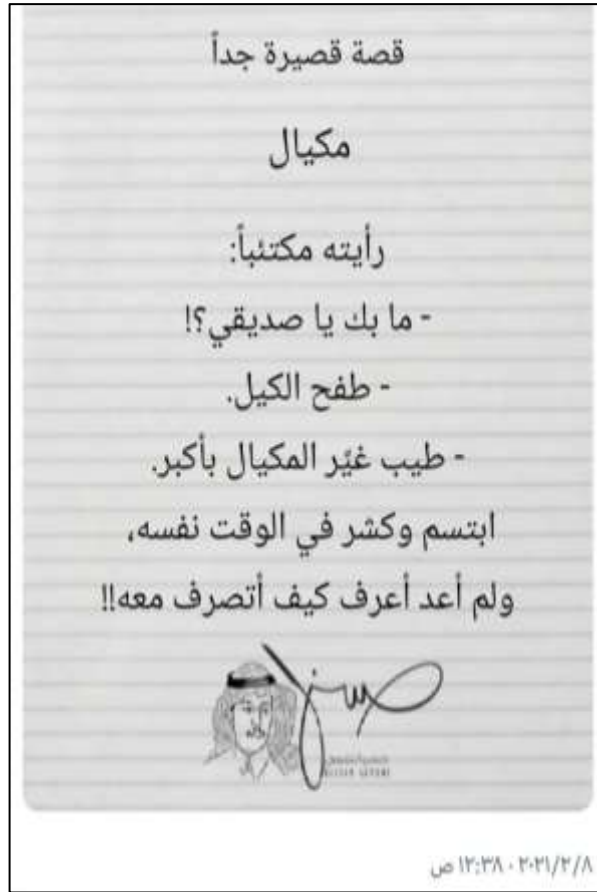 قصة قصيرة جداً
مكيال
رأيته مكتئباً:
- ما بك يا صديقي؟!
- طفح الكيل.
- طيب غيّر المكيال بأكبر.
ابتسم وكشر في الوقت نفسه،
ولم أعد أعرف كيف أتصرف معه!!
٢٠٢١/٢/٨ · ١٢:٣٨ ص